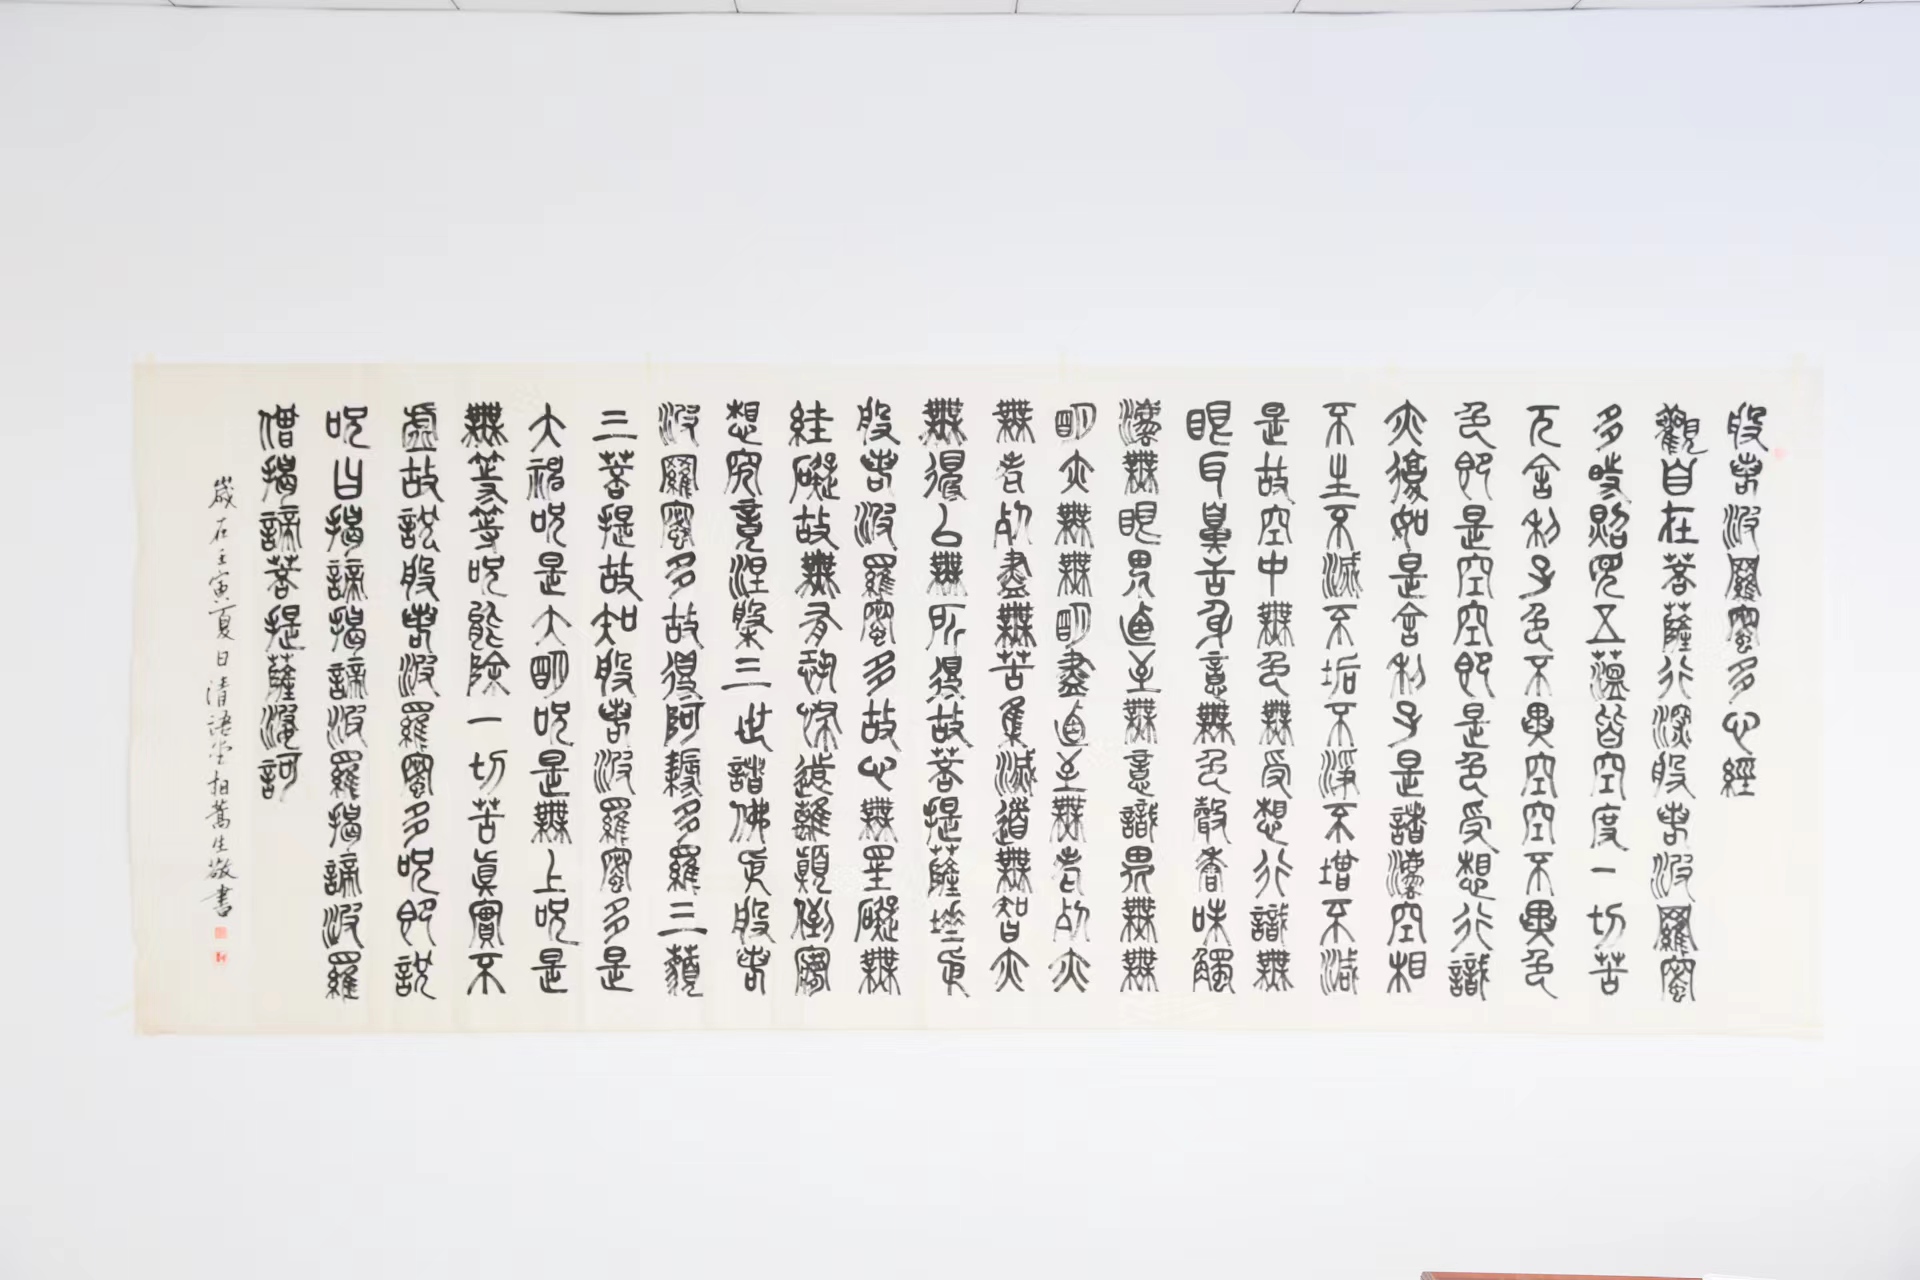 般若波羅蜜多心經
觀自在菩薩行深般若波羅蜜
多時照見五蘊皆空度一切苦
厄舍利子色不異空空不異色
色即是空空即是色受想行識
亦復如是舍利子是諸灋空相
不生不滅不垢不淨不增不減
是故空中無色無受想行識無
眼耳鼻舌身意無色聲香味觸
灋無眼界迺至無意識界無無
明亦無無明盡迺至無老死亦
無老死盡無苦集滅道無智亦
無得以無所得故菩提薩埵依
般若波羅蜜多故心無罣礙無
絓礙故無有恐怖遠離顛倒夢
想究竟涅槃三世諸佛依般若
波羅蜜多故得阿耨多羅三藐
三菩提故知般若波羅蜜多是
大神呪是大明呪是無上呪是
無等等呪能除一切苦真實不
虛故說般若波羅蜜多呪即說
呪曰揭諦揭諦波羅揭諦波羅
僧揭諦菩提薩婆訶
歲在壬寅夏日清語堂柏蒿生敬書